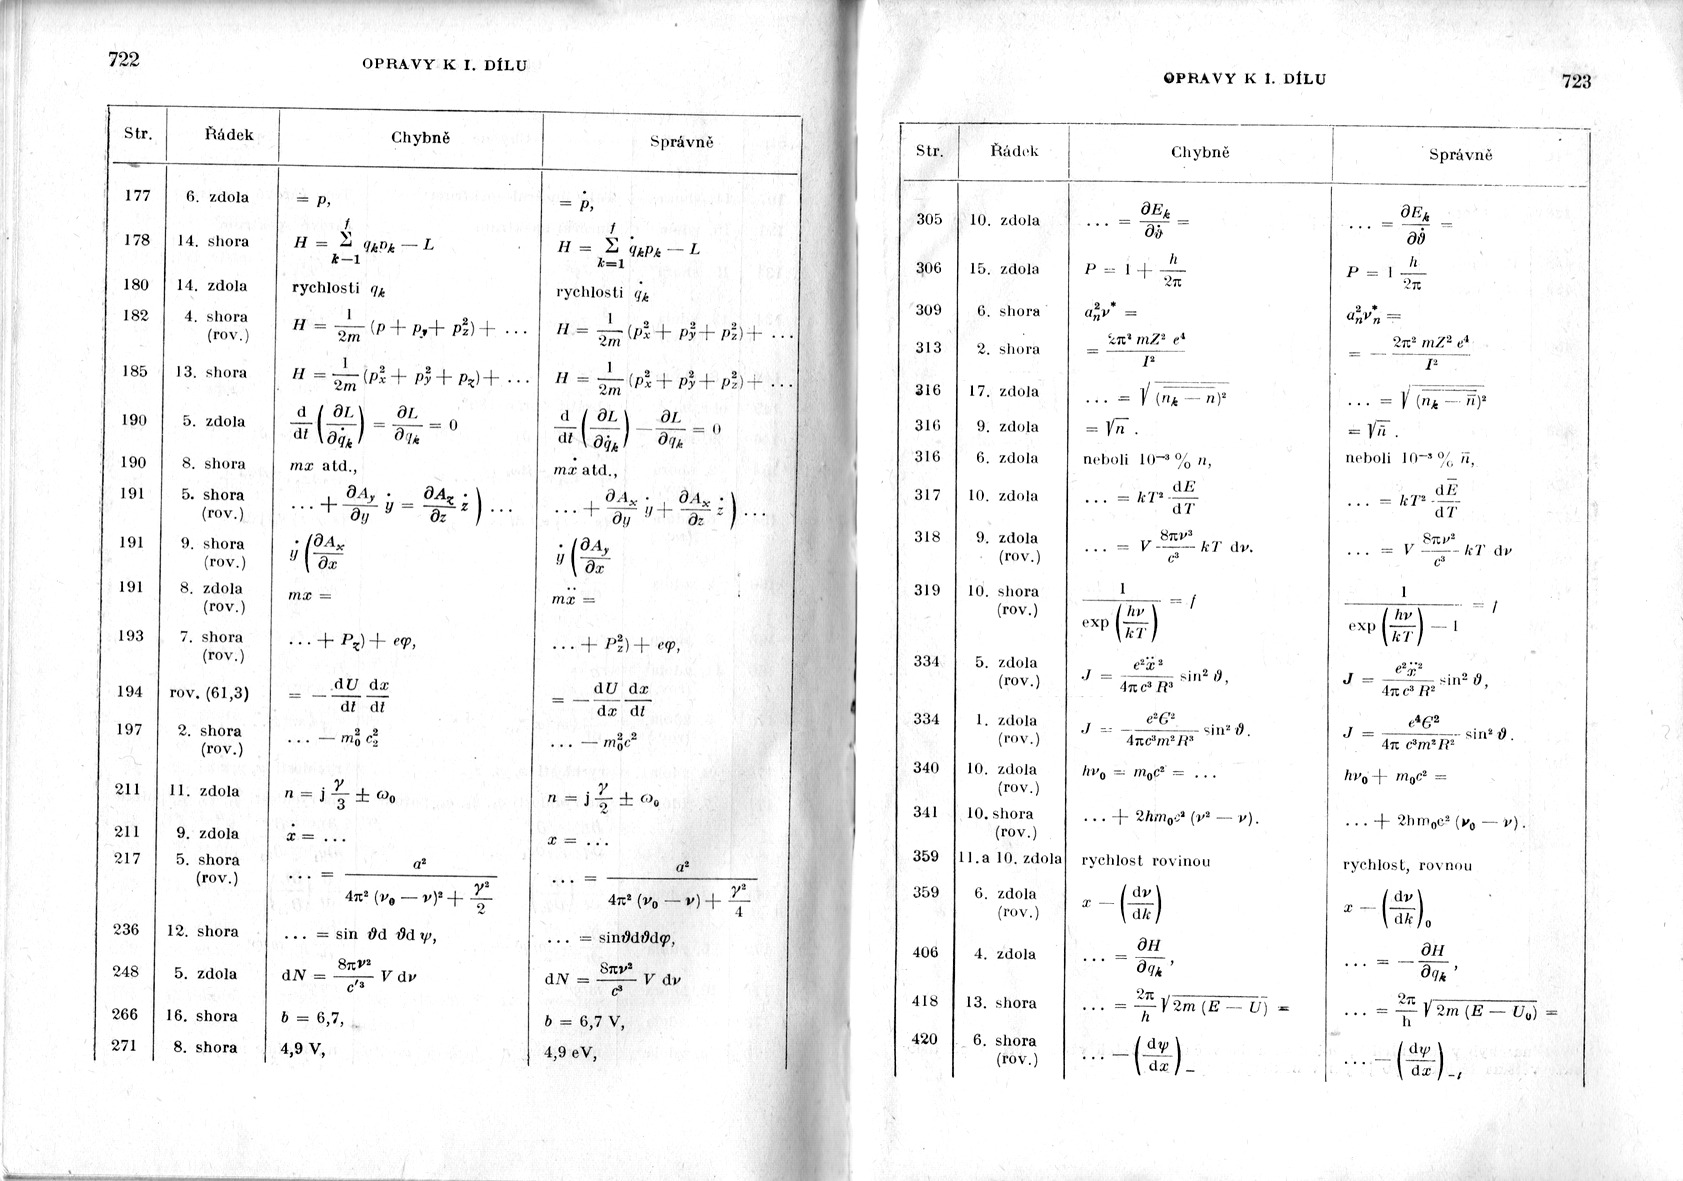 722
OPRAVY K I. DÍLU
Str. Řádek Chybně Správně
177 6. zdola = p, = ṗ,
178 14. shora H = Σ_{k−1}^{f} q_k p_k — L H = Σ_{k=1}^{f} q̇_k p_k — L
180 14. zdola rychlosti q_k rychlosti q̇_k
182 4. shora (rov.) H = 1/2m (p + p_y + p_z²) + ... H = 1/2m (p_x² + p_y² + p_z²) + ...
185 13. shora H = 1/2m (p_x² + p_y² + p_z) + ... H = 1/2m (p_x² + p_y² + p_z²) + ...
190 5. zdola d/dt (∂L/∂q̇_k) = ∂L/∂q_k = 0 d/dt (∂L/∂q̇_k) — ∂L/∂q_k = 0
190 8. shora mx atd., mẋ atd.,
191 5. shora (rov.) ... + ∂A_y/∂y ẏ = ∂A_z/∂z ż) ... ... + ∂A_x/∂y ẏ + ∂A_x/∂z ż) ...
191 9. shora (rov.) ẏ (∂A_x/∂x ẏ (∂A_y/∂x
191 8. zdola (rov.) mx = mẍ =
193 7. shora (rov.) ... + P_z) + eφ, ... + P_z²) + eφ,
194 rov. (61,3) = — dU/dt dx/dt = — dU/dx dx/dt
197 2. shora (rov.) ... — m₀² c₂² ... — m₀²c²
211 11. zdola n = j γ/3 ± ω₀ n = j γ/2 ± ω₀
211 9. zdola ẋ = ... x = ...
217 5. shora (rov.) ... = a²/(4π² (ν₀ — ν)² + γ²/2) ... = a²/(4π² (ν₀ — ν) + γ²/4)
236 12. shora ... = sin ϑd ϑd ψ, ... = sinϑdϑdφ,
248 5. zdola dN = 8πν²/c′³ V dν dN = 8πν²/c³ V dν
266 16. shora b = 6,7, b = 6,7 V,
271 8. shora 4,9 V, 4,9 eV,
OPRAVY K I. DÍLU
723
Str. Řádek Chybně Správně
305 10. zdola ... = ∂E_k/∂ϑ̇ = ... = ∂E_k/∂ϑ =
306 15. zdola P = 1 + h/2π P = 1 h/2π
309 6. shora a_n²ν* = a_n²ν_n* =
313 2. shora = 2π² mZ² e⁴/I² = — 2π² mZ² e⁴/I²
316 17. zdola ... = √(n_k — n)² ... = √(n_k — n̄)²
316 9. zdola = √n . = √n̄ .
316 6. zdola neboli 10⁻³ % n, neboli 10⁻³ % n̄,
317 10. zdola ... = kT² dE/dT ... = kT² dĒ/dT
318 9. zdola (rov.) ... = V 8πν³/c³ kT dν. ... = V 8πν²/c³ kT dν
319 10. shora (rov.) 1/exp (hν/kT) = f 1/(exp (hν/kT) — 1) = f
334 5. zdola (rov.) J = e²ẍ²/4πc³R³ sin² ϑ, J = e²ẍ²/4πc³R² sin² ϑ,
334 1. zdola (rov.) J = e²G²/4πc³m²R³ sin² ϑ. J = e⁴G²/4π c³m²R² sin² ϑ.
340 10. zdola (rov.) hν₀ = m₀c² = ... hν₀ + m₀c² =
341 10. shora (rov.) ... + 2hm₀c² (ν² — ν). ... + 2hm₀c² (ν₀ — ν).
359 11. a 10. zdola rychlost rovinou rychlost, rovnou
359 6. zdola (rov.) x — (dν/dk) x — (dν/dk)₀
406 4. zdola ... = ∂H/∂q_k , ... = — ∂H/∂q_k ,
418 13. shora ... = 2π/h √2m (E — U) = ... = 2π/h √2m (E — U₀) =
420 6. shora (rov.) ... — (dψ/dx)_– ... — (dψ/dx)_–l